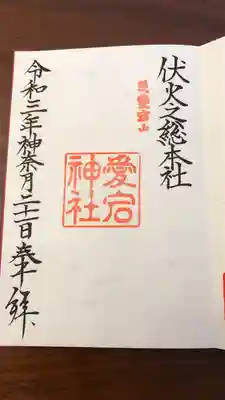 伏火之総本社
愛宕山
愛宕
神社
令和三年神奈月二十一日奉拝